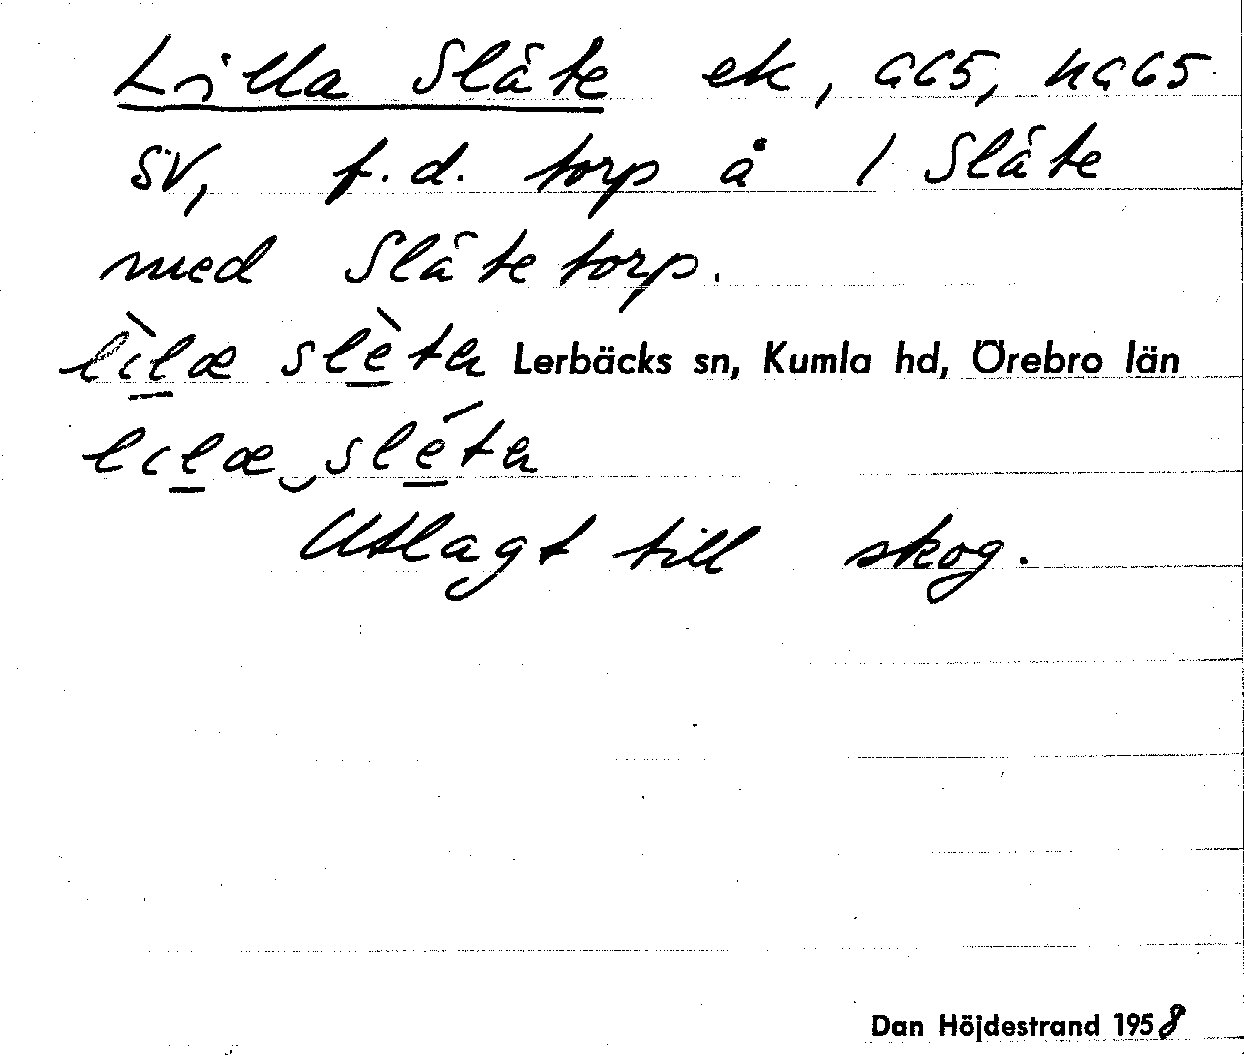 Lilla Slåte ek, GC5, hGC5
SV, f.d. torp å 1 Slåte
med Slåtetorp.
lìlæ slèta Lerbäcks sn, Kumla hd, Örebro län
lilæ‿sléta
Utlagt till skog.
Dan Höjdestrand 1958